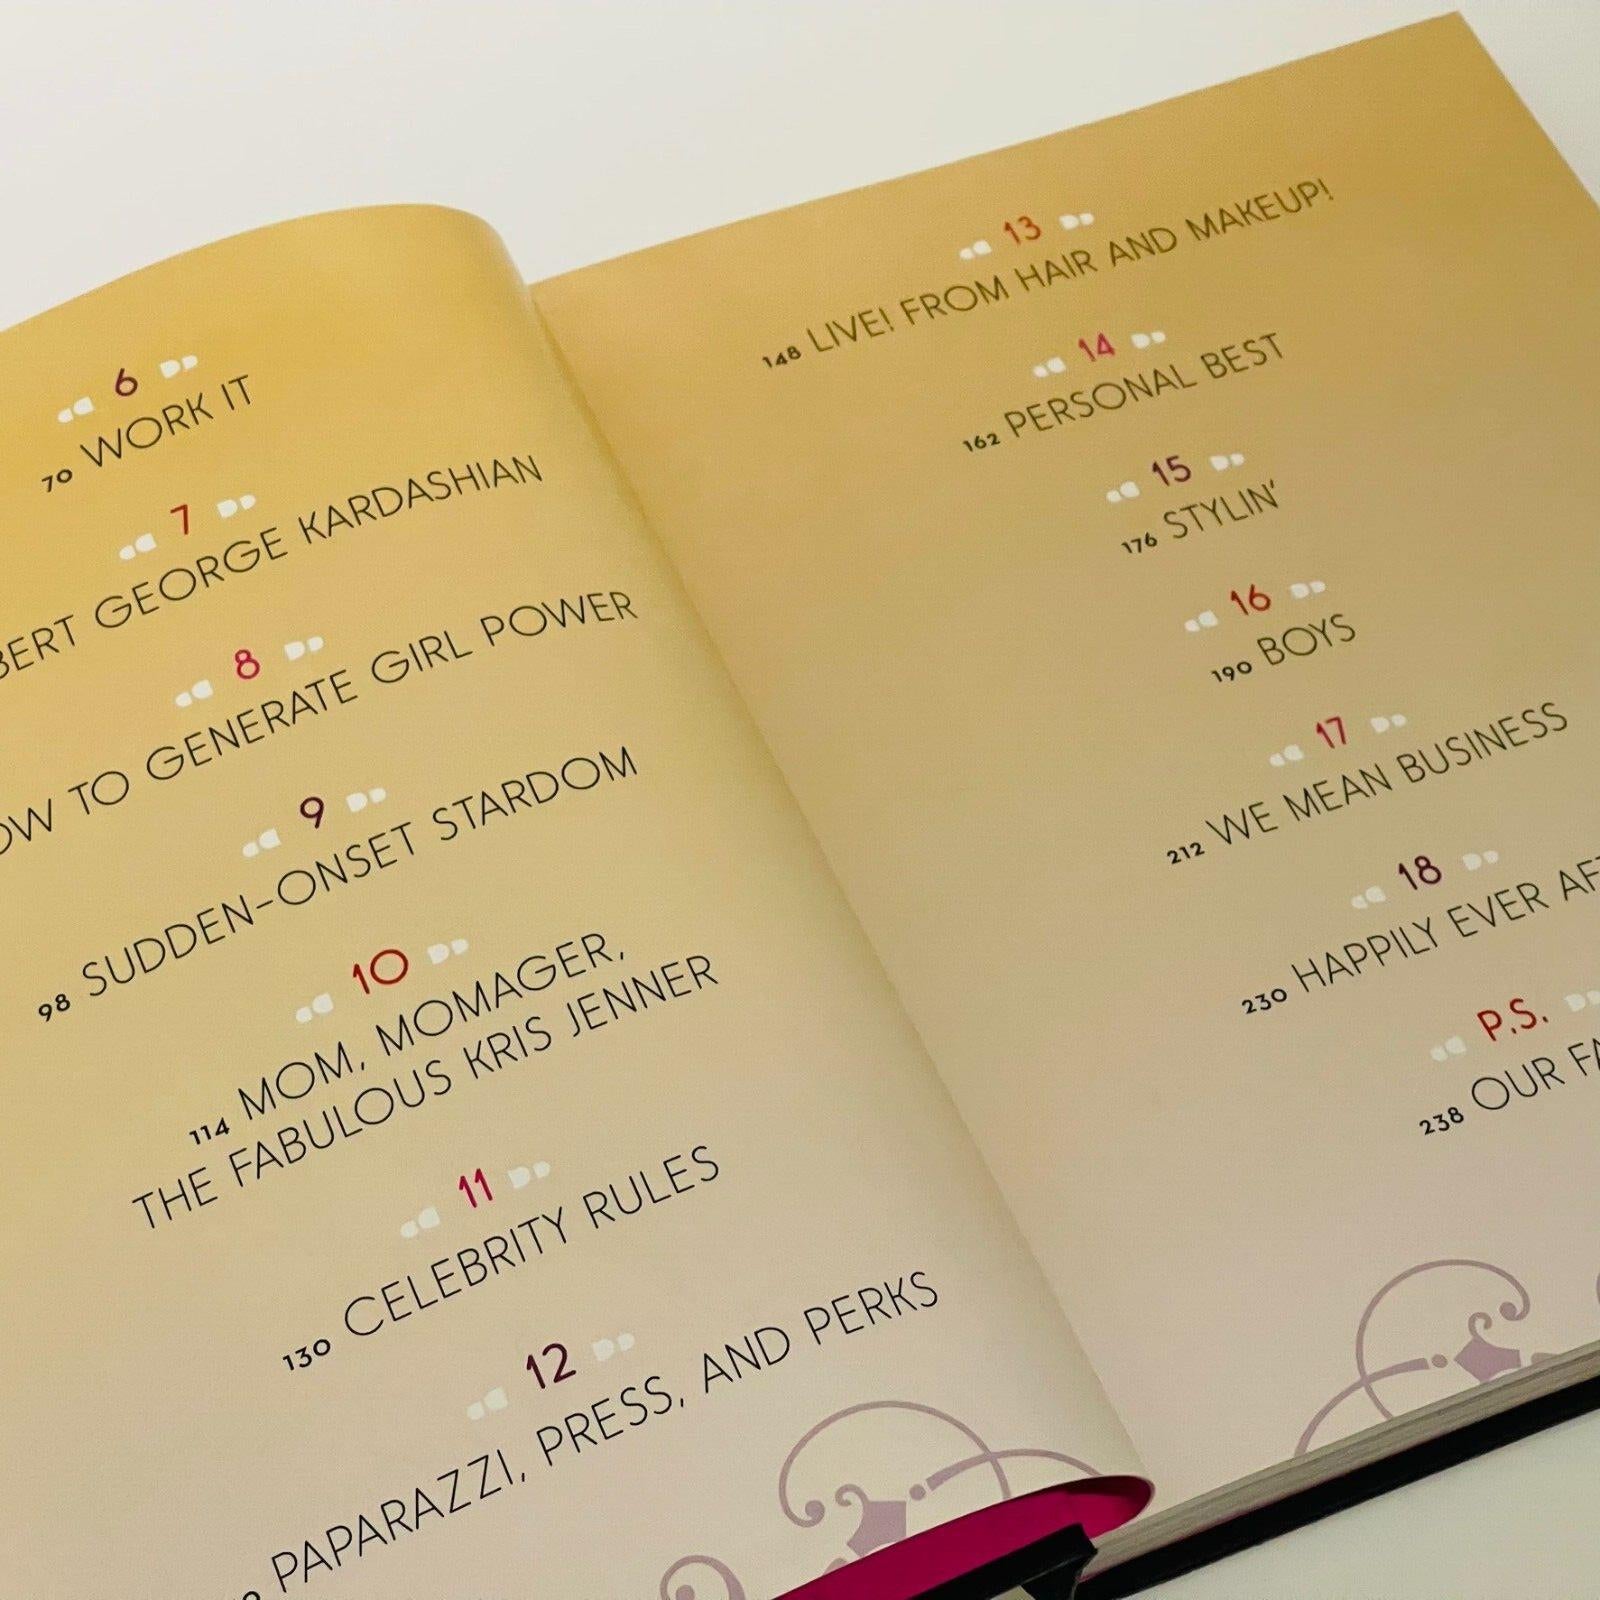 6
70 WORK IT
7
GEORGE KARDASHIAN
8
TO GENERATE GIRL POWER
9
98 SUDDEN-ONSET STARDOM
10
114 MOM, MOMAGER,
THE FABULOUS KRIS JENNER
11
130 CELEBRITY RULES
12
PAPARAZZI, PRESS, AND PERKS
13
148 LIVE! FROM HAIR AND MAKEUP!
14
162 PERSONAL BEST
15
176 STYLIN'
16
190 BOYS
17
212 WE MEAN BUSINESS
18
230 HAPPILY EVER
P.S.
238 OUR